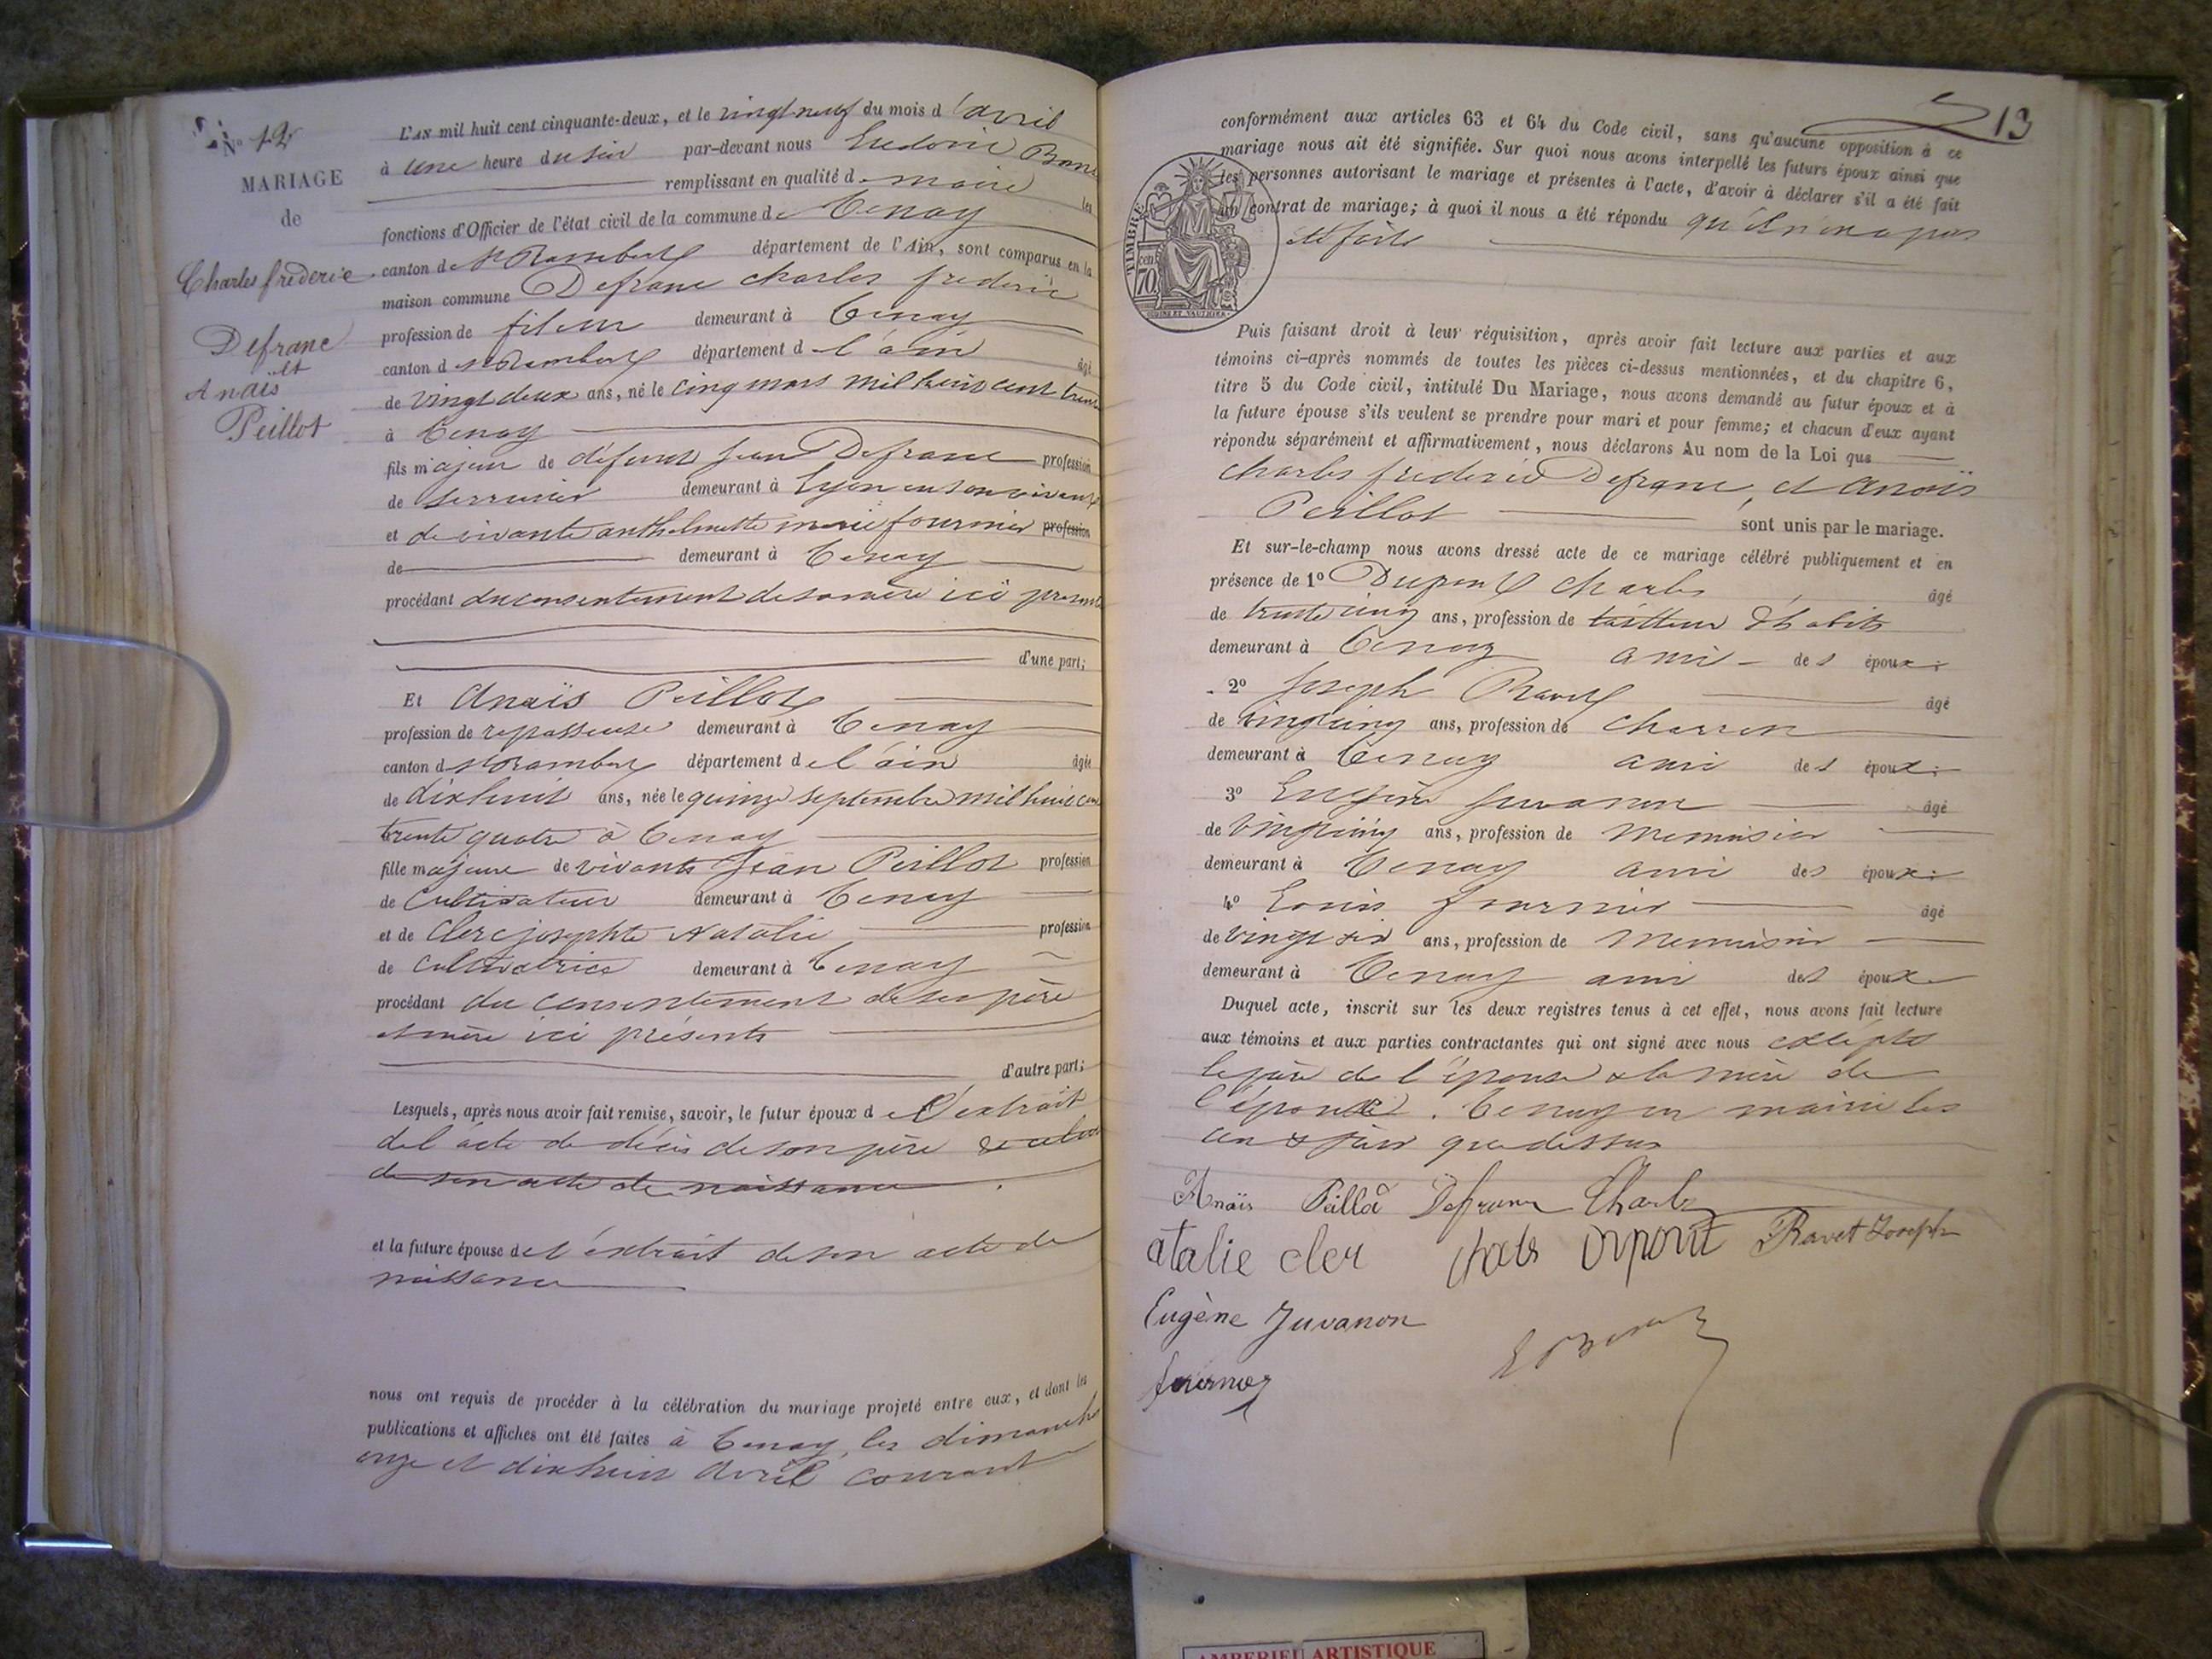 N° 12
MARIAGE
de
Charles frédéric
Defranc
et
Anaïs
Peillot
L'AN mil huit cent cinquante-deux, et le vingt neuf du mois d'avril
à une heure du soir par-devant nous
remplissant en qualité de maire les
fonctions d'Officier de l'état civil de la commune de Tenay
canton de St Rambert département de l'Ain, sont comparus en la
maison commune Defranc charles frederic
profession de fileur demeurant à Tenay
canton d St Rambert département de l'ain âgé
de vingt deux ans, né le cinq mars mil huit cent trente
à Tenay
fils majeur de défunt Jean Defranc profession
de serrurier demeurant à Lyon en son vivant
et de vivante anthelmette marie fournier profession
de demeurant à Tenay
procédant du consentement de sa mère ici présente
d'une part;
Et Anaïs Peillot
profession de repasseuse demeurant à Tenay
canton d St Rambert département de l'ain âgée
de dixhuit ans, née le quinze septembre mil huit cent
trente quatre à Tenay
fille majeure de vivants Jean Peillot profession
de Cultivateur demeurant à Tenay
et de Clerc josephte Natalie profession
de Cultivatrice demeurant à Tenay
procédant du consentement de ses père
et mère ici présents
d'autre part;
Lesquels, après nous avoir fait remise, savoir, le futur époux de l'extrait
de l'acte de décès de son père & celui
de son acte de naissance.
et la future épouse de l'extrait de son acte de
naissance
nous ont requis de procéder à la célébration du mariage projeté entre eux, et dont les
publications et affiches ont été faites à Tenay, les dimanches
onze et dixhuit avril courant
13
conformément aux articles 63 et 64 du Code civil, sans qu'aucune opposition à ce
mariage nous ait été signifiée. Sur quoi nous avons interpellé les futurs époux ainsi que
les personnes autorisant le mariage et présentes à l'acte, d'avoir à déclarer s'il a été fait
un contrat de mariage; à quoi il nous a été répondu qu'il n'en a pas
été faite
TIMBRE
cen
70
Puis faisant droit à leur réquisition, après avoir fait lecture aux parties et aux
témoins ci-après nommés de toutes les pièces ci-dessus mentionnées, et du chapitre 6,
titre 5 du Code civil, intitulé Du Mariage, nous avons demandé au futur époux et à
la future épouse s'ils veulent se prendre pour mari et pour femme; et chacun d'eux ayant
répondu séparément et affirmativement, nous déclarons Au nom de la Loi que
charles frederic Defranc, et Anaïs
Peillot sont unis par le mariage.
Et sur-le-champ nous avons dressé acte de ce mariage célébré publiquement et en
présence de 1° Dupont Charles âgé
de trente cinq ans, profession de tailleur d'habits
demeurant à Tenay ami des époux;
2° Joseph Ravet âgé
de vingt cinq ans, profession de Charron
demeurant à Tenay ami des époux;
3° Eugène Juvanon âgé
de vingt cinq ans, profession de Menuisier
demeurant à Tenay ami des époux;
4° Louis fournier âgé
de vingt six ans, profession de Menuisier
demeurant à Tenay ami des époux
Duquel acte, inscrit sur les deux registres tenus à cet effet, nous avons fait lecture
aux témoins et aux parties contractantes qui ont signé avec nous excepté
le père de l'épouse & la mère de
l'époux. Tenay en mairie les
an & jour que dessus
Anaïs Peillot Defranc Charles
atalie cler charls Dupont Ravet Joseph
Eugène Juvanon
fournier
AMBERIEU ARTISTIQUE